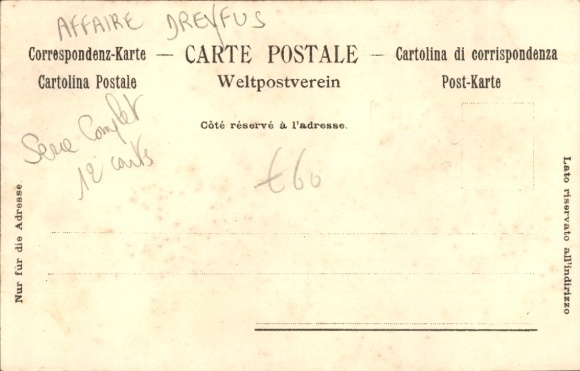 AFFAIRE DREYFUS
Correspondenz-Karte — CARTE POSTALE — Cartolina di corrispondenza
Cartolina Postale Weltpostverein Post-Karte
Côté réservé à l'adresse.
Serie Complet
12 carts
€60
Nur für die Adresse
Lato riservato all'indirizzo